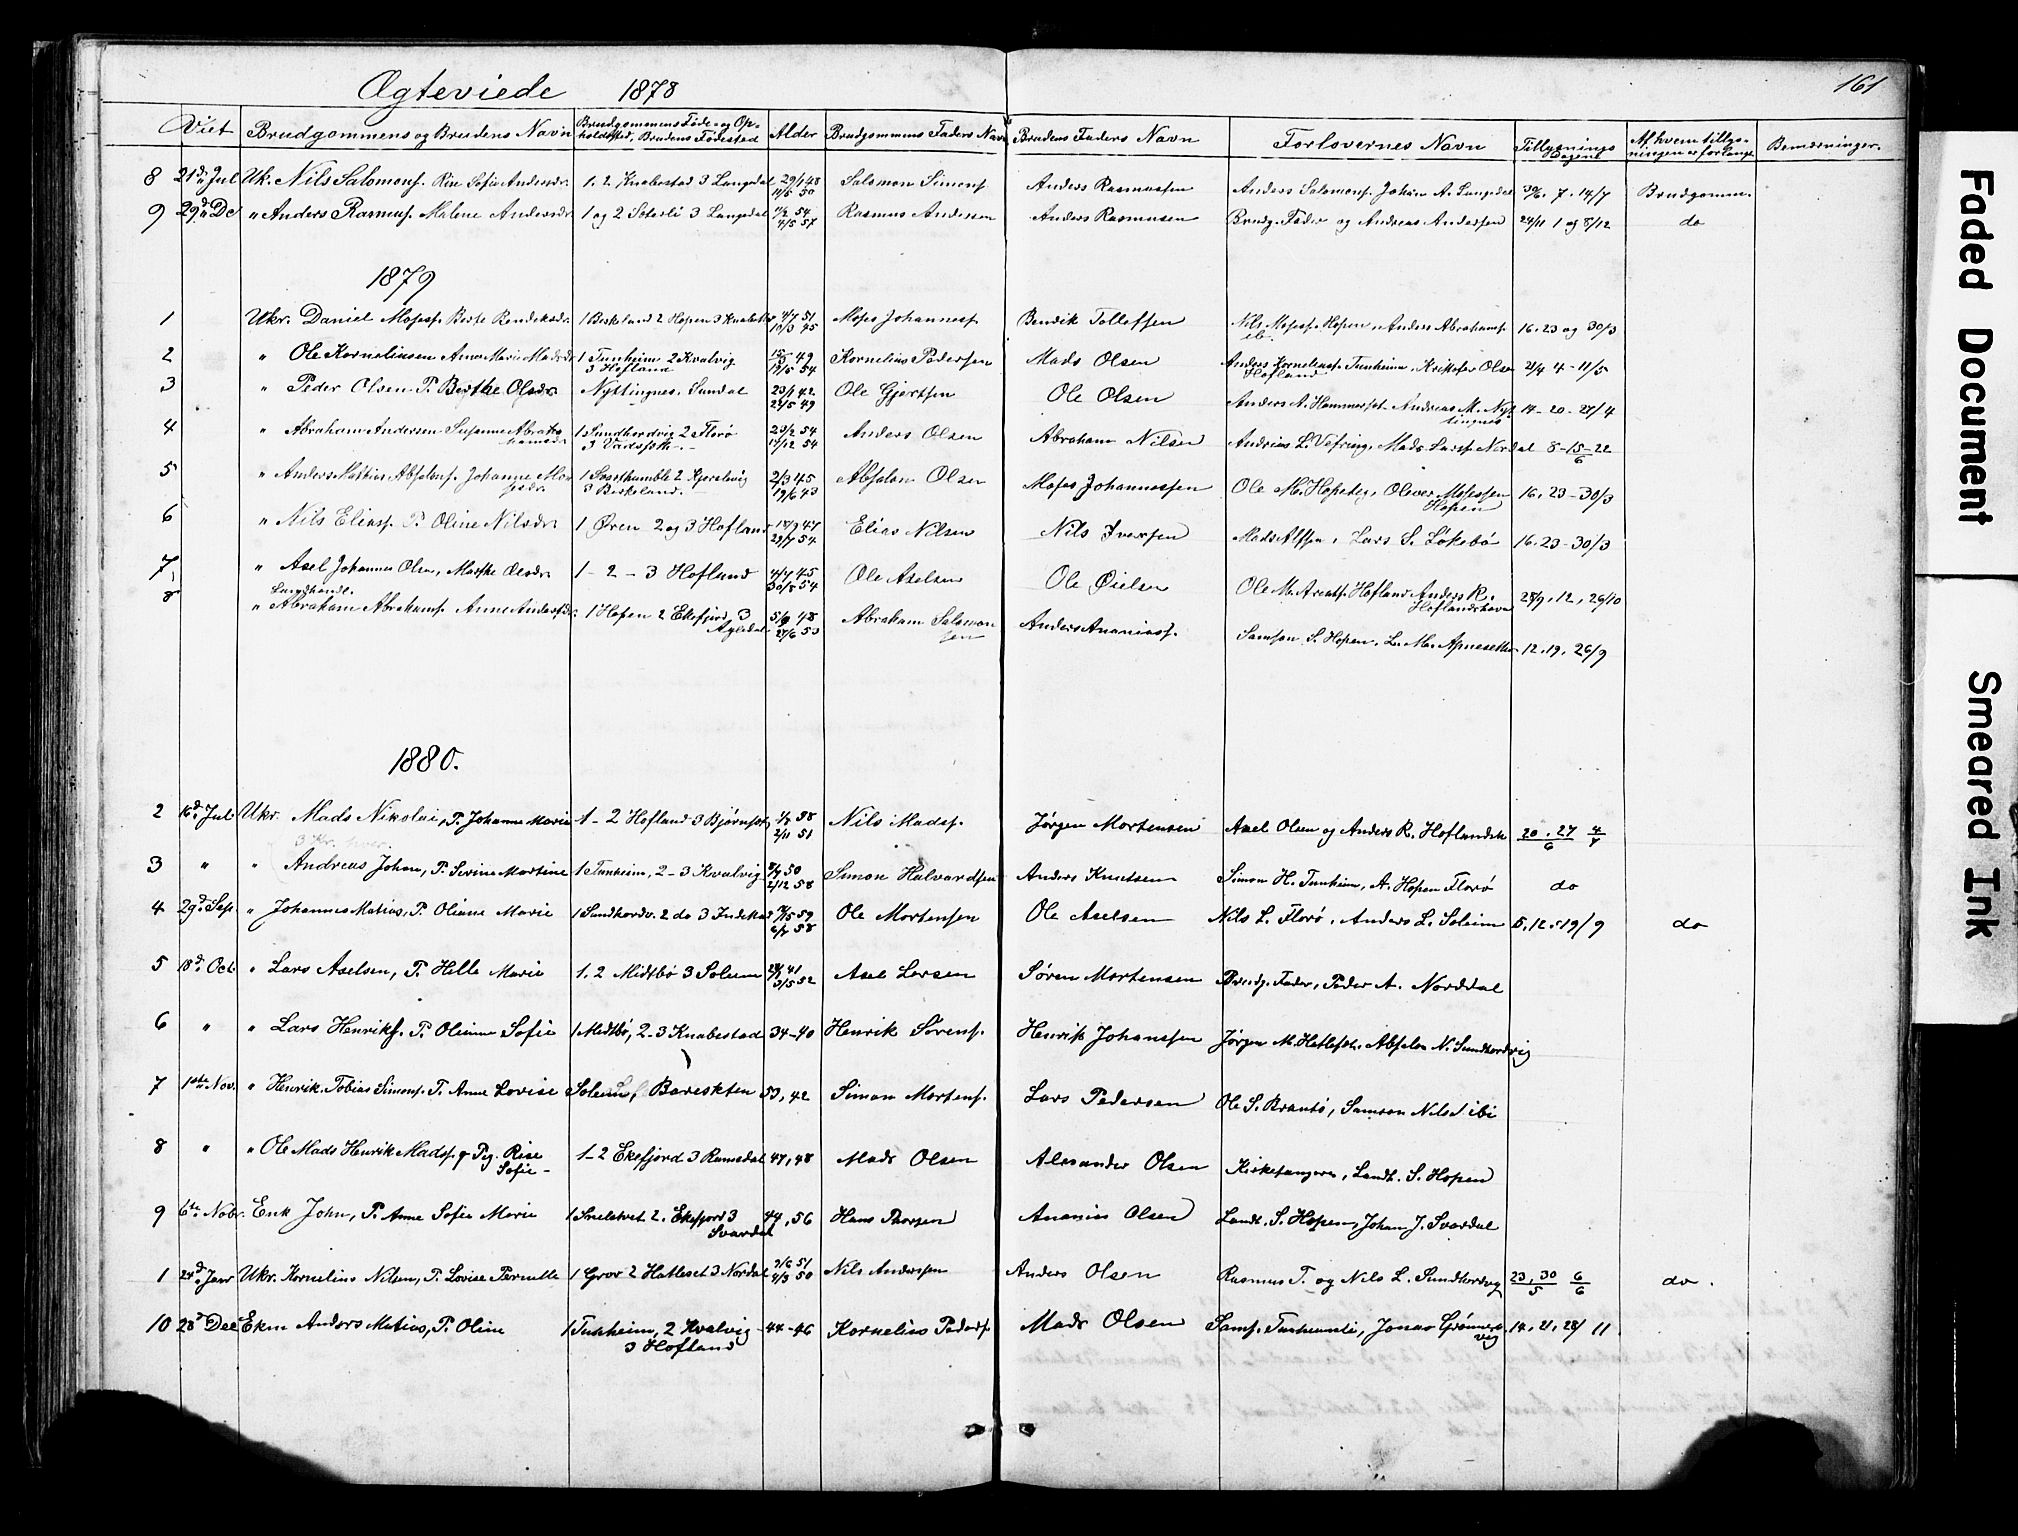 Ægteviede 1878
161
Viet Brudgommens og Brudens Navn Brudgommens Føde- og Opholdssted, Brudens Fødested Alder Brudgommens Faders Navn Brudens Faders Navn Forlovernes Navn Tillysnings Dagene Af hvem tillysningen er forlangt Bemærkninger.
8 21de Jul Uk. Nils Salomons. Rise Sofie Andersdr. 1. 2 Knabestad 3 Langedal 29/1 48 11/5 50 Salomon Simons Anders Rasmussen Anders Salomons. Johan A. Langedal 30/6. 7. 14/7 Brudgomm.
9 29de De " Anders Rasmus. Malene Andersdr. 1 og 2 Seterli 3 Langedal 1/2 54 4/5 57 Rasmus Andersen Anders Rasmussen Brudg. Fader og Andreas Andersen 24/11 1 og 8/12 do
1879
1 Ukr. Daniel Moses. Berte Bendiksdr. 1 Birkeland 2 Hopen 3 Knabestad 4/7 51 10/3 45 Moses Johannes. Bendik Tollefsen Nils Moses. Hopen, Anders Abrahams. ib. 16. 23 og 30/3
2 " Ole Korneliusen Anne Marie Madsdr. 1 Tunheim 2 Kvalvig 3 Hofland 49 19/5 54 Kornelius Pedersen Mads Olsen Anders Korneliuss. Tunheim, Kristofer Olsen Hofland 21/4 4 - 11/5
3 " Peder Olsen P. Berthe Olsdr. Nyttingnes. Sundal 23/1 42 22/5 49 Ole Gjertsen Ole Olsen Anders A. Hammerset Andreas M. Nyttingnes 14 - 20 - 27/4
4 " Abraham Andersen Susanne Abrahamsdr. 1 Sundhordvig 2 Florø 3 23/2 54 17/12 54 Anders Olsen Abraham Nilsen Andreas L. Vefring, Mads Lars. Nordal 8 - 15 - 22/6
5 " Anders Mathias Absalons. Johanne Mosesdr. 1 2 Kjerelvig 3 Birkeland. 2/3 45 19/6 43 Absalon Olsen Moses Johannessen Ole M. Hopedeg, Oliver Mosessen Hopen 16. 23 - 30/3
6 " Nils Elias. P. Oline Nilsdr. 1 Øren 2 og 3 Hofland 18/9 47 29/7 54 Elias Nilsen Nils Iversen Mads Alfsen, Lars S. Løkebø 16. 23 - 30/3
7 " Axel Johannes Olsen, Marthe Olsdr. 1 - 2 - 3 Hofland 4/7 45 30/8 54 Ole Axelsen Ole Øielsen Ole M. Hofland Anders R. Hoflandshavn 28/9, 12, 26/10
8 Landhandl. " Abraham Abrahams. Anne Andersdr. 1 Hopen 2 Ekefjord 3 5/9 48 27/6 53 Abraham Salomonsen Anders Ananiass. Samson S. Hopen, L. M. Apnesetter 12. 19. 26/9
1880.
2 16de Jul Ukr. Mads Nikolai, P. Johanne Marie 1 - 2 Hofland 3 Bjørnset 1/8 58 2/11 51 Nils Mads. Jørgen Mortensen Axel Olsen og Anders R. Hoflandsh 20. 27/6 4/7
3 Kr. hver.
3 " " Andreas Johan, P. Serine Martine 1 Tunheim, 2 - 3 Kvalvig 50 2/12 58 Simon Halvardsen Anders Knutsen Simon H. Tunheim, A. Hopen Florø do
4 29de Sep. " Johannes Matias, P. Oliane Marie 1 Sundhordv. 2 do 3 Indekse 5 59 6/7 58 Ole Mortensen Ole Axelsen Nils L. Florø, Anders L. Soleim 5. 12. 19/9 do
5 18de Oct. " Lars Axelsen, P. Helle Marie 1. 2 Midtbø 3 Soleim 41 3/5 52 Axel Larsen Søren Mortensen Brudg. Fader, Peder A. Norddal
6 " " Lars Henriks. P. Olianne Sofie 1 Midtbø, 2 - 3 Knabestad 34 - 40 Henrik Sørens. Henrik Johanssen Jørgen M. Hatleset. Absalon N. Sundhordvig
7 1ste Nov. " Henrik Tobias Simons. P. Anne Lovise Soleim, Bareksten 53, 42 Simon Mortens. Lars Pedersen Ole S. Brantø, Samson Nils ibi
8 " " Ole Mads Henrik Mads. + Pg. Rise Sofie - 1 - 2 Ekefjord 3 Ramsdal 47, 48 Mads Olsen Alexander Olsen Kirkesangeren, Landh. S. Hopen
9 6te Nobr. Enk John, P. Anne Sofie Marie 1 2. Ekefjord 3 Svardal 44, 56 Hans Thorsen Ananias Olsen Landh. S. Hopen, Johan J. Svardal
1 24de Janr Ukr. Kornelius Nilsen, P. Lovise Pernelle 1 Grov 2 Hatleset 3 Nordal 2/6 51 4/3 50 Nils Anderssen Anders Olsen Rasmus T. og Nils L. Sundhordvg 23, 30/5 6/6 do.
10 28de Dec Ekm Anders Matias, P. Oline 1 Tunheim, 2 Kvalvig 3 Hofland 44 - 46 Kornelius Peders. Mads Olsen Sams. Tunheimli, Jonas Grønnevig 14, 21, 28/11
Faded Document
Smeared Ink